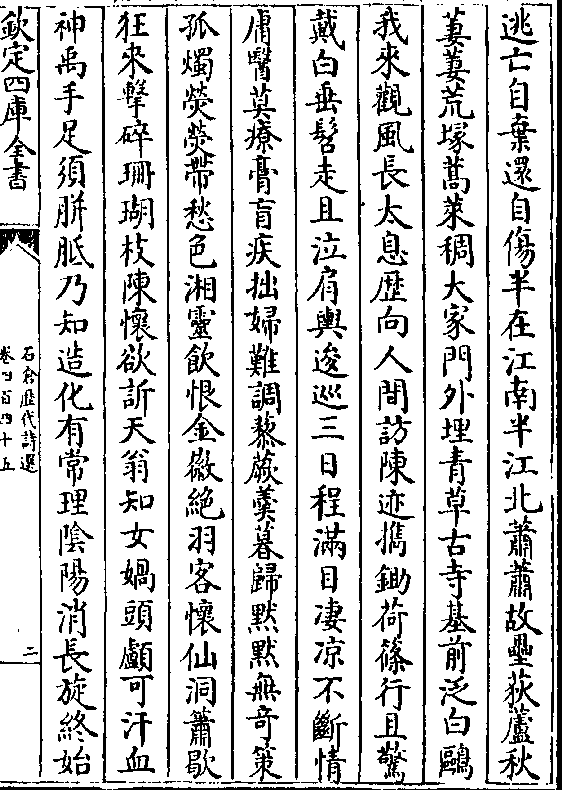 逃亡自棄還自傷半在江南半江北蕭蕭故壘荻蘆秋
萋萋荒塚蒿萊稠大家門外埋青草古寺基前泛白鷗
我來觀風長太息歴向人間訪陳迹擕鋤荷篠行且驚
戴白垂髫走且泣肩輿逡巡三日程滿目凄凉不斷情
庸醫莫療膏肓疾拙婦難調藜蕨羮暮歸黙黙無竒策
孤燭熒熒帶愁色湘靈飲恨金徽絶羽客懷仙洞簫歇
狂來擊碎珊瑚枝陳懷欲訴天翁知女媧頭顱可汗血
神禹手足須胼胝乃知造化有常理陰陽消長旋終始
欽定四庫全書
石倉歴代詩選
卷四百四十五
二